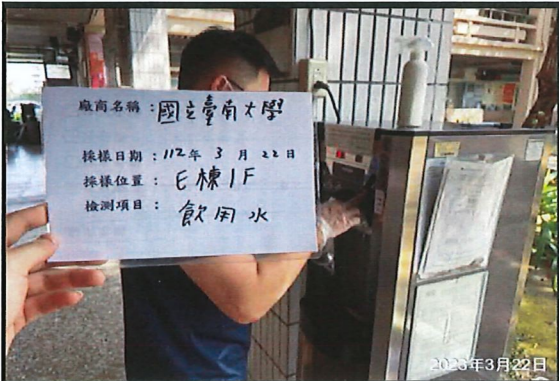 廠商名稱：國立臺南大學
採樣日期：112年3月22日
採樣位置：E棟1F
檢測項目：飲用水
2023年3月22日